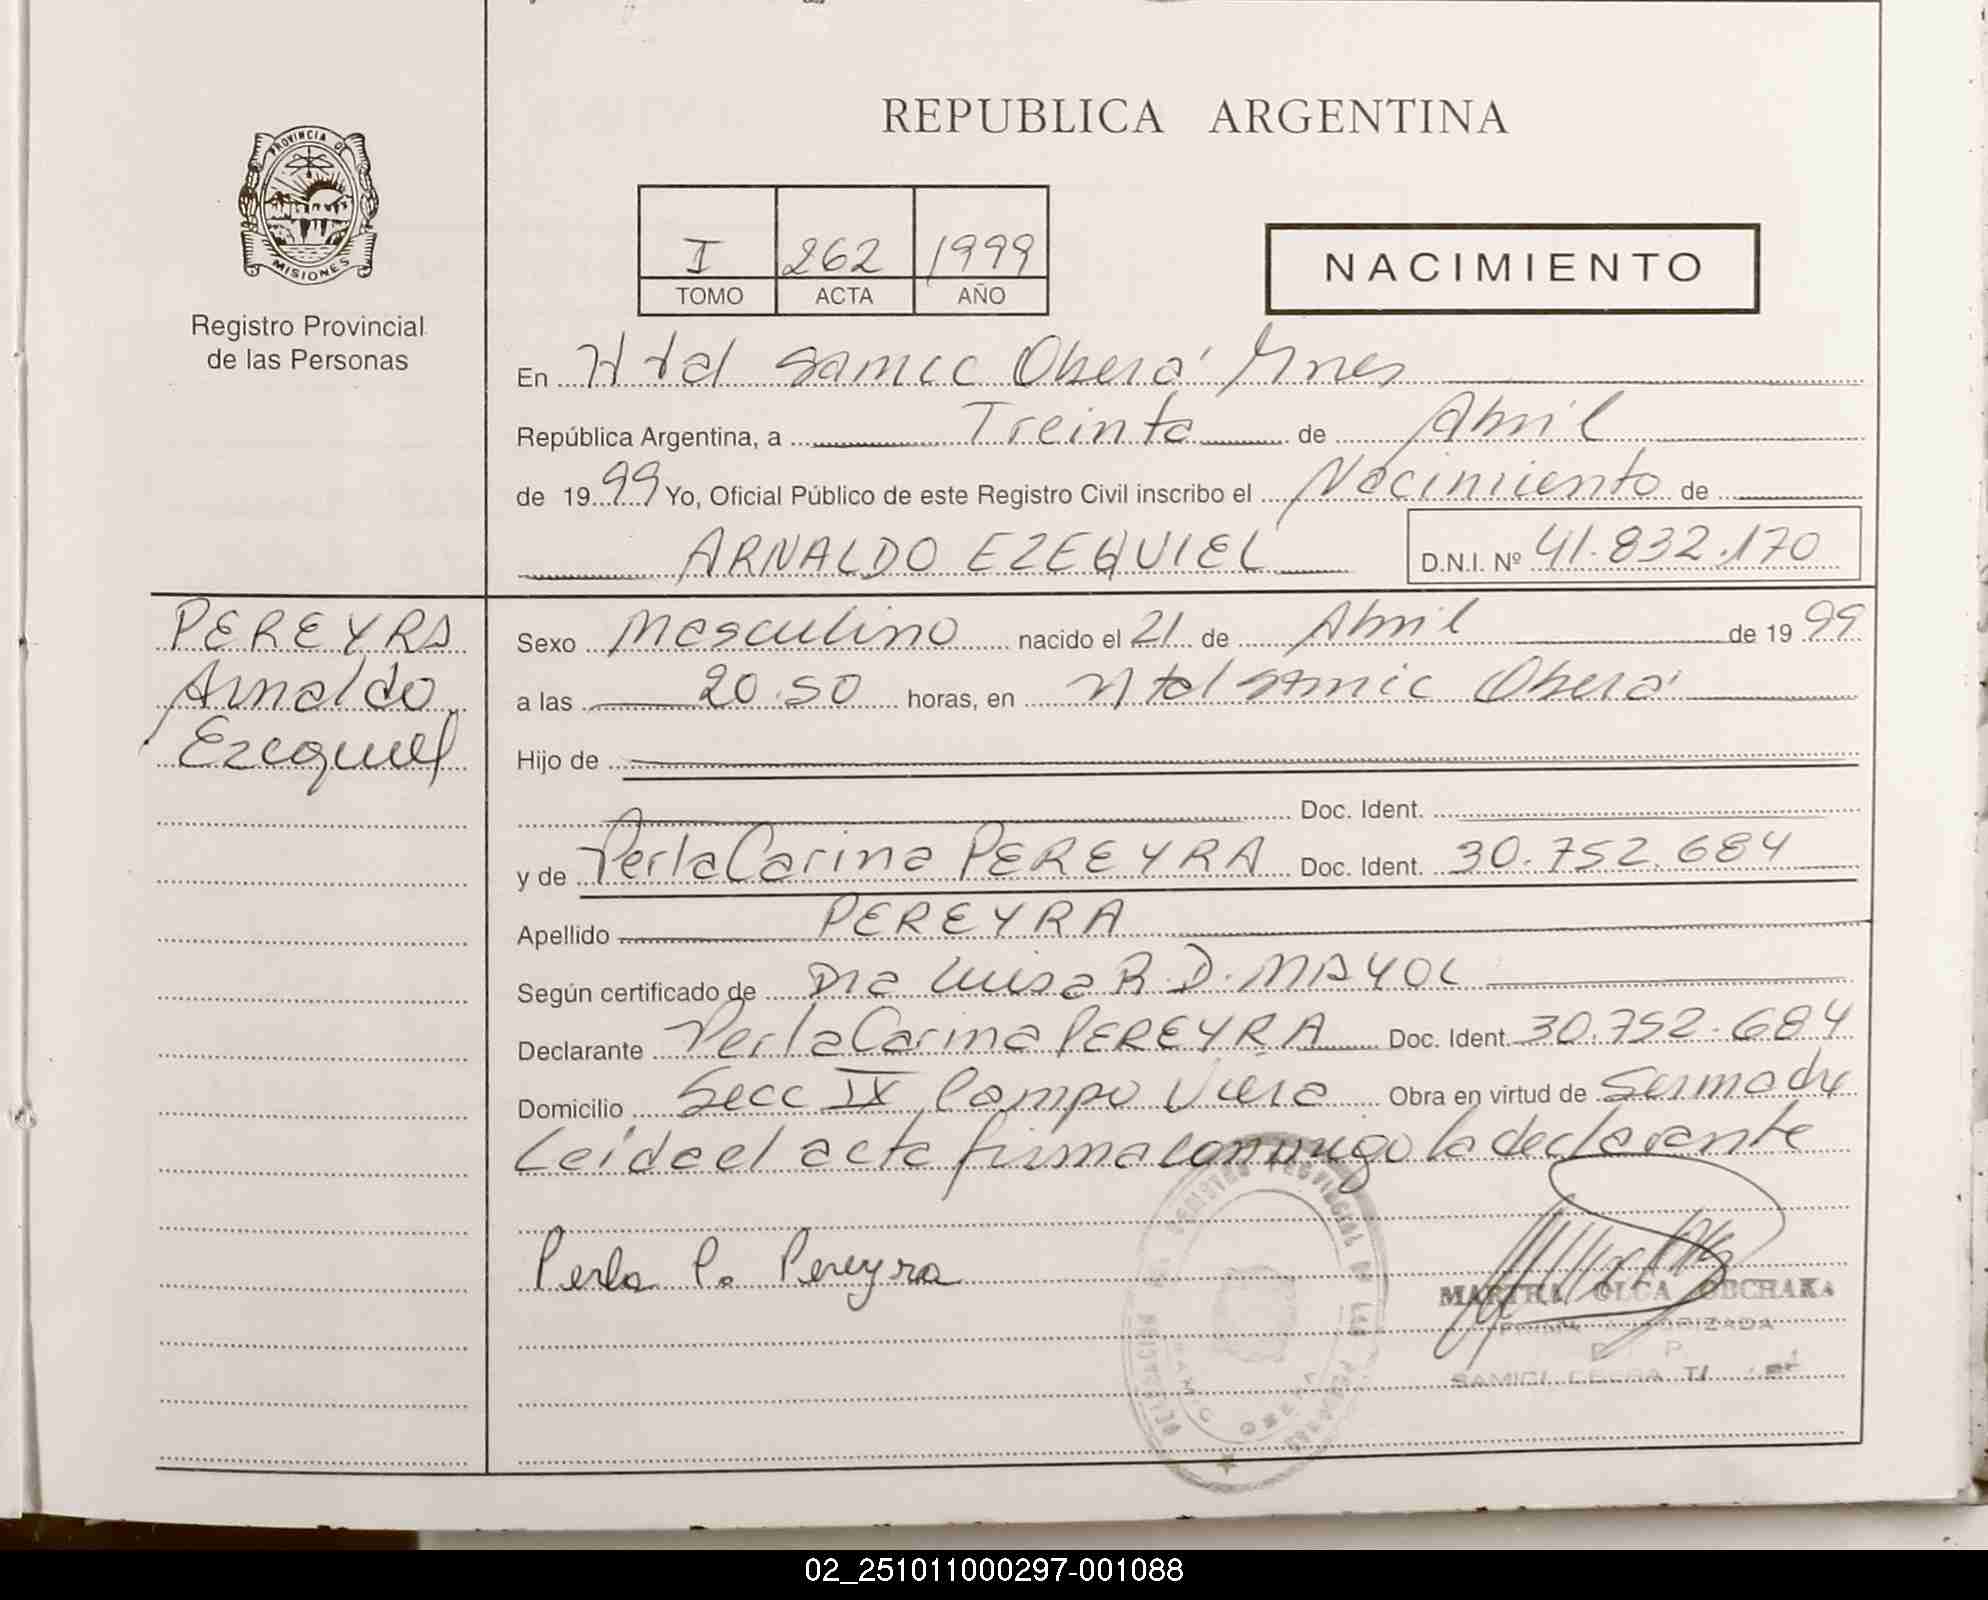 REPUBLICA ARGENTINA
PROVINCIA DE
MISIONES
Registro Provincial
de las Personas
I 262 1999
TOMO ACTA AÑO
NACIMIENTO
En Htal Samic Oberá Mnes
República Argentina, a Treinta de Abril
de 1999 Yo, Oficial Público de este Registro Civil inscribo el Nacimiento de
ARNALDO EZEQUIEL D.N.I. Nº 41.832.170
PEREYRA
Arnaldo
Ezequiel
Sexo Masculino nacido el 21 de Abril de 1999
a las 20.50 horas, en Htal Samic Oberá
Hijo de
Doc. Ident.
y de Perla Carina PEREYRA Doc. Ident. 30.752.684
Apellido PEREYRA
Según certificado de Dra Luisa R. D. MAYOL
Declarante Perla Carina PEREYRA Doc. Ident. 30.752.684
Domicilio Secc IX Campo Viera Obra en virtud de Ser madre
Leída el acta firma conmigo la declarante
Perla C. Pereyra
MARTHA OLGA OBCHAKA
FIRMA AUTORIZADA
REGISTRO PROVINCIAL DE LAS PERSONAS
02_251011000297-001088